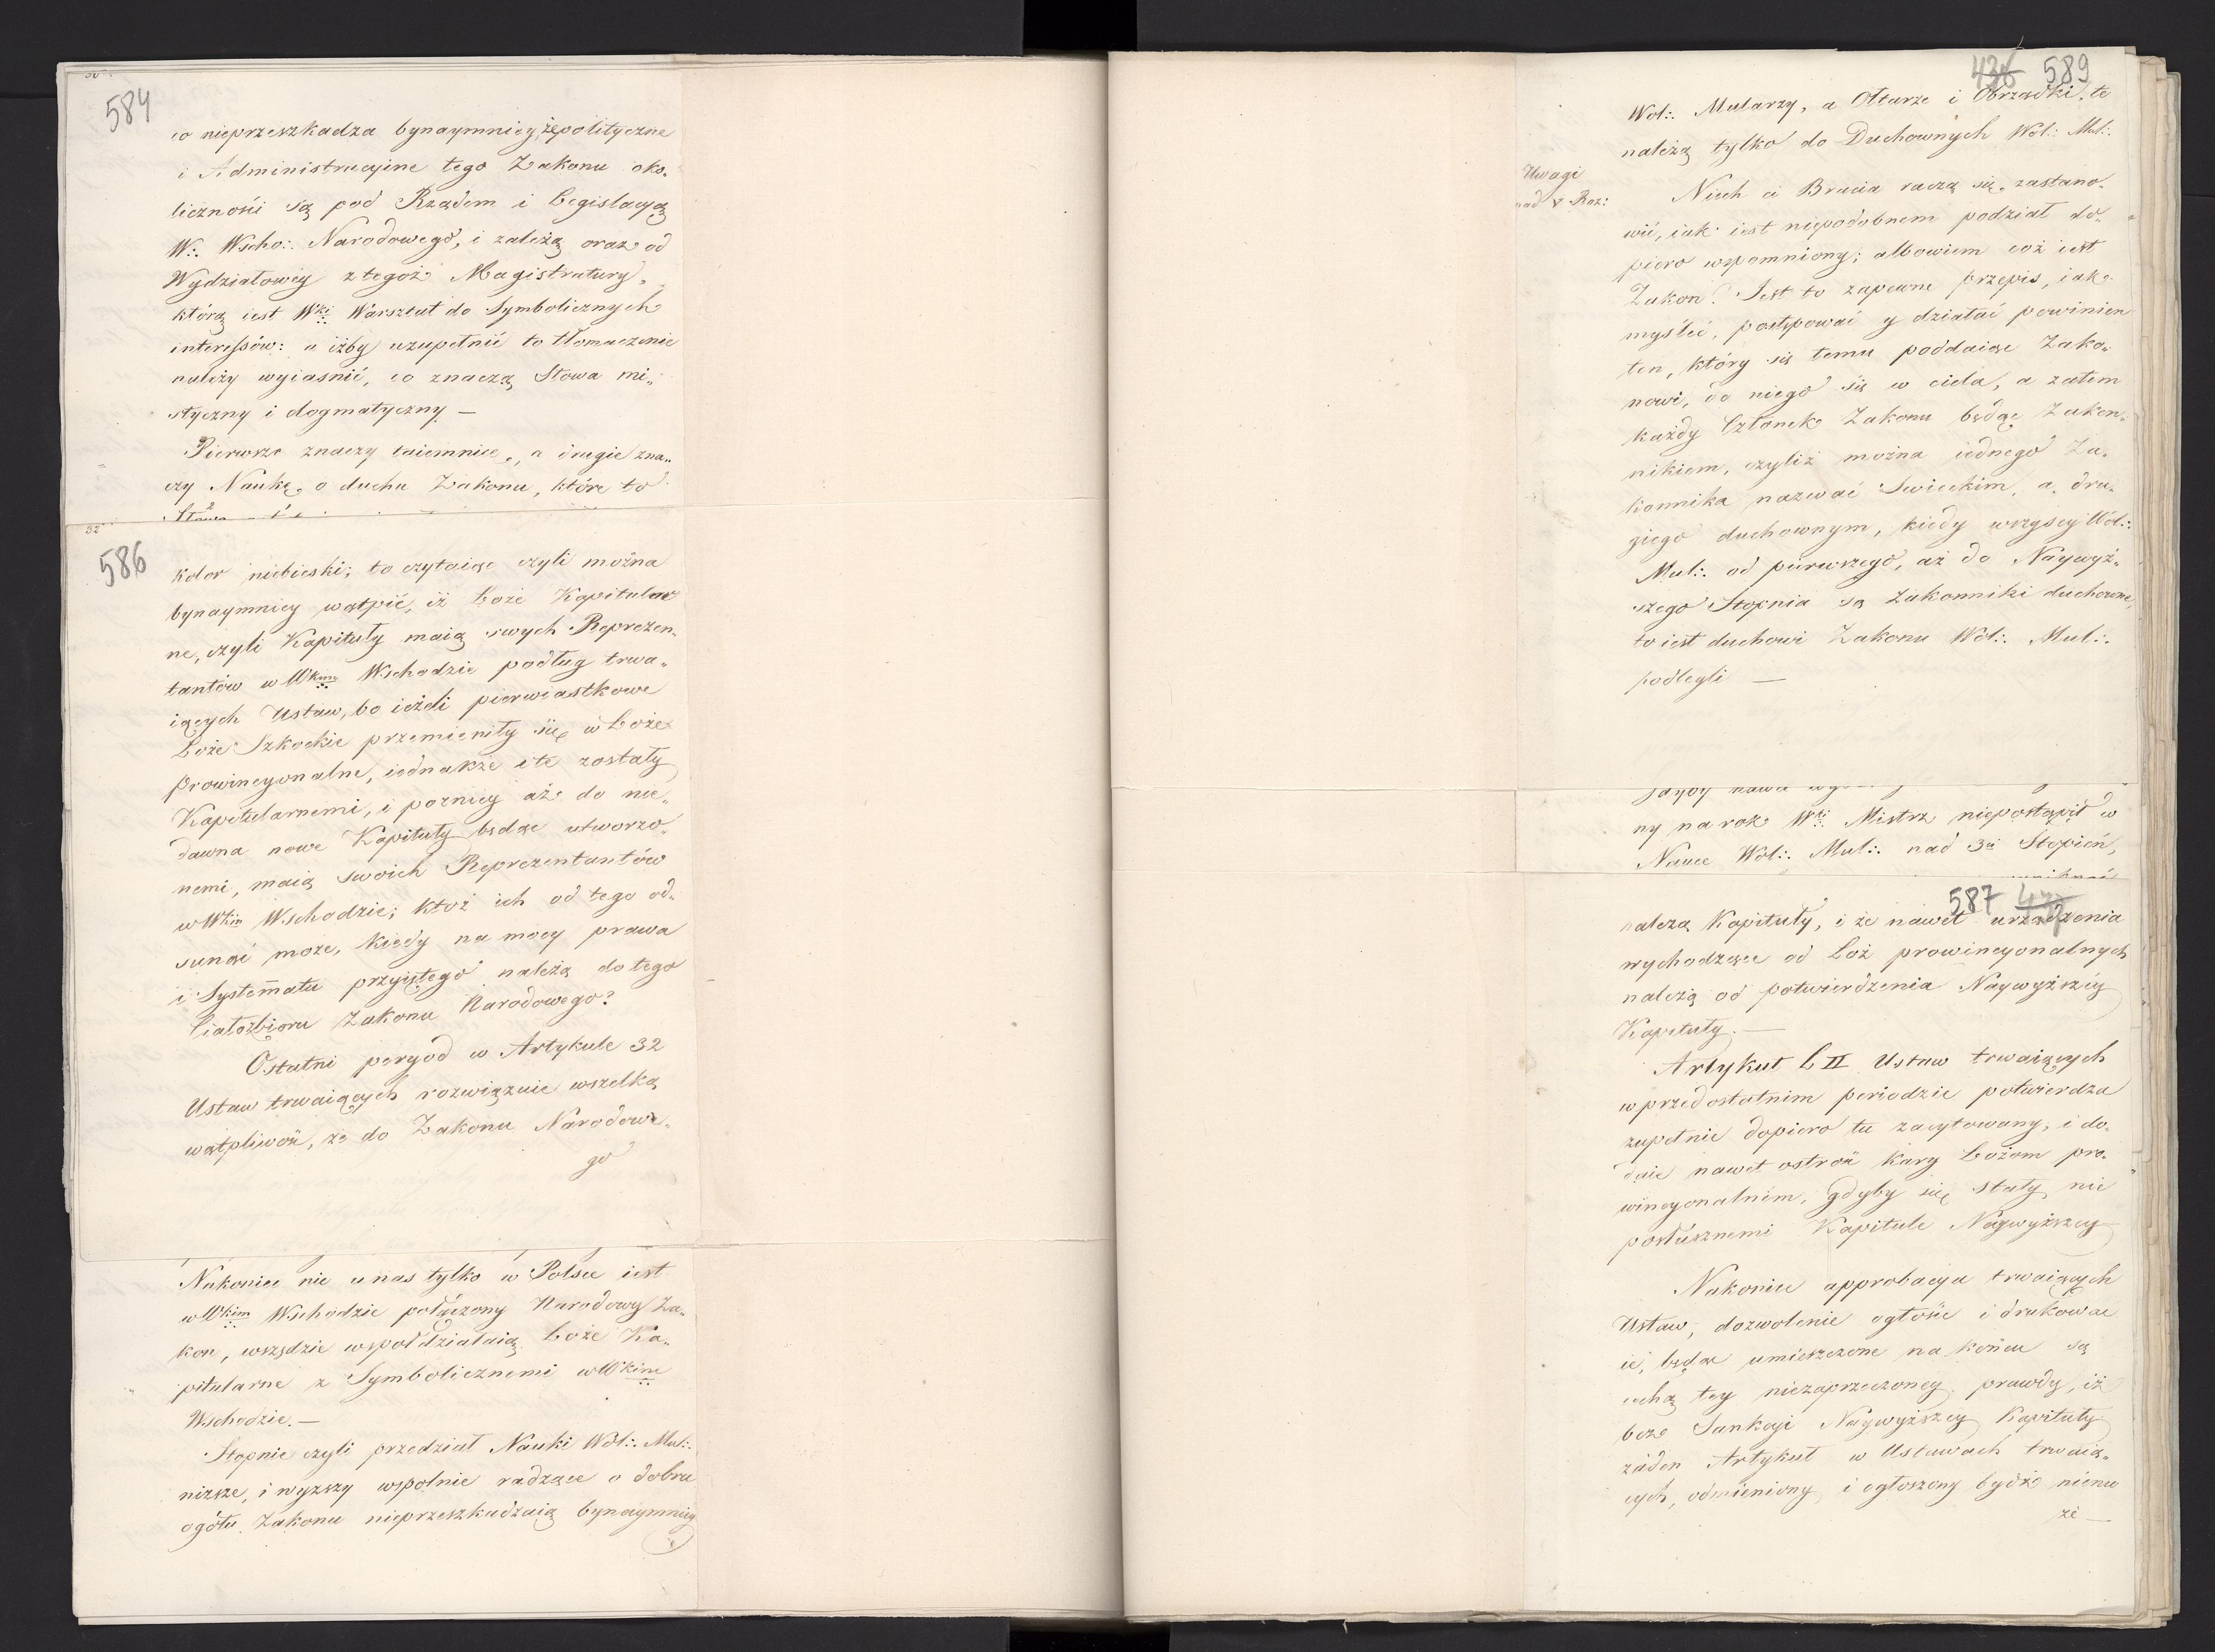 584
co nieprzeszkadza bynaymniey, że polityczne
i Administracyine tego Zakonu oko„
liczności są pod Rządem i Legislacyą
W∴ Wscho∴ Narodowego, i zależą oraz od
Wydziałowey z tegoż Magistratury,
którą iest Wki Warsztat do Symbolicznych
interessów: a iżby uzupełnić to tłomaczenie
należy wyiasnić, co znaczą Słowa mi„
styczny i dogmatyczny —
Pierwsze znaczy taiemnice, a drugie zna„
czy Naukę o duchu Zakonu, które to
32
586
kolor niebieski; to czytaiąc czyli można
bynaymniey wątpić, iż Loże Kapitular
ne, czyli Kapituły maią swych Reprezen„
tantów w Wkim Wschodzie podług trwa„
iących Ustaw, bo ieżeli pierwiastkowe
Loże Szkockie przemieniły się w Loże
Prowincyonalne, iednakże i te zostały
Kapitularnemi, i pozniey aże do nie„
dawna nowe Kapituły będąc utworzo„
nemi, maią swoich Reprezentantów
w Wkim Wschodzie; ktoż ich od tego od„
sunąć może, kiedy na mocy prawa
i Systematu przyiętego należą do tego
Ciałozbioru Zakonu Narodowego?
Ostatni peryod w Artykule 32
Ustaw trwaiących rozwiązuie wszelką
wątpliwość, że do Zakonu Narodowe„
go
Nakoniec nie u nas tylko w Polsce iest
w Wkim Wschodzie połączony Narodowy Za„
kon, wszędzie wspołdziałaią Loże Ka„
pitularne z Symbolicznemi w Wkim
Wschodzie. —
Stopnie czyli przedział Nauki Wol∴ Mul∴
niższe, i wyższy wspolnie radzące o dobru
ogółu Zakonu nieprzeszkadzaią bynaymniey
436 589
Wol∴ Mularzy, a Ołtarze i Obrządki, te
należą tylko do Duchownych Wol∴ Mul∴
Uwagi
nad V Roz:
Niech ci Bracia raczą się zastano„
wić, iak iest niepodobnem podział do„
piero wspomniony; albowiem coż iest
Zakon? Jest to zapewne przepis, iak
mysleć, postępować y działać powinien
ten, który się temu poddaiąc Zako„
nowi, do niego się w ciela, a zatem
każdy Członek Zakonu będąc Zakon„
nikiem, czyliż można iednego Za„
konnika nazwać Swieckim, a dru„
giego duchownym, kiedy wszyscy Wol∴
Mul∴ od pierwszego, aż do Naywyż„
szego Stopnia są Zakonniki duchowne,
to iest duchowi Zakonu Wol∴ Mul∴
podlegli —
ny na rok Wki Mistrz niepostąpił w
Nauce Wol∴ Mul∴ nad 3ci Stopień,
587
należą Kapituły, i że nawet urządzenia
wychodzące od Loż prowincyonalnych
należą od potwierdzenia Naywyższey
Kapituły. —
Artykuł LII Ustaw trwaiących
w przedostatnim periodzie potwierdza
zupełnie dopiero tu zacytowany, i do„
daie nawet ostrość kary Lożom pro„
wincyonalnem, gdyby się stały nie
posłusznemi Kapitule Naywyższey
Nakoniec approbacya trwaiących
Ustaw, dozwolenie ogłosić i drukować
ie, będąc umieszczone na końcu są
cechą tey niezaprzeczoney prawdy, iż
beze Sankcyi Naywyższey Kapituły
żaden Artykuł w Ustawach trwaią„
cych, odmieniony i ogłoszony bydź niemo
że —